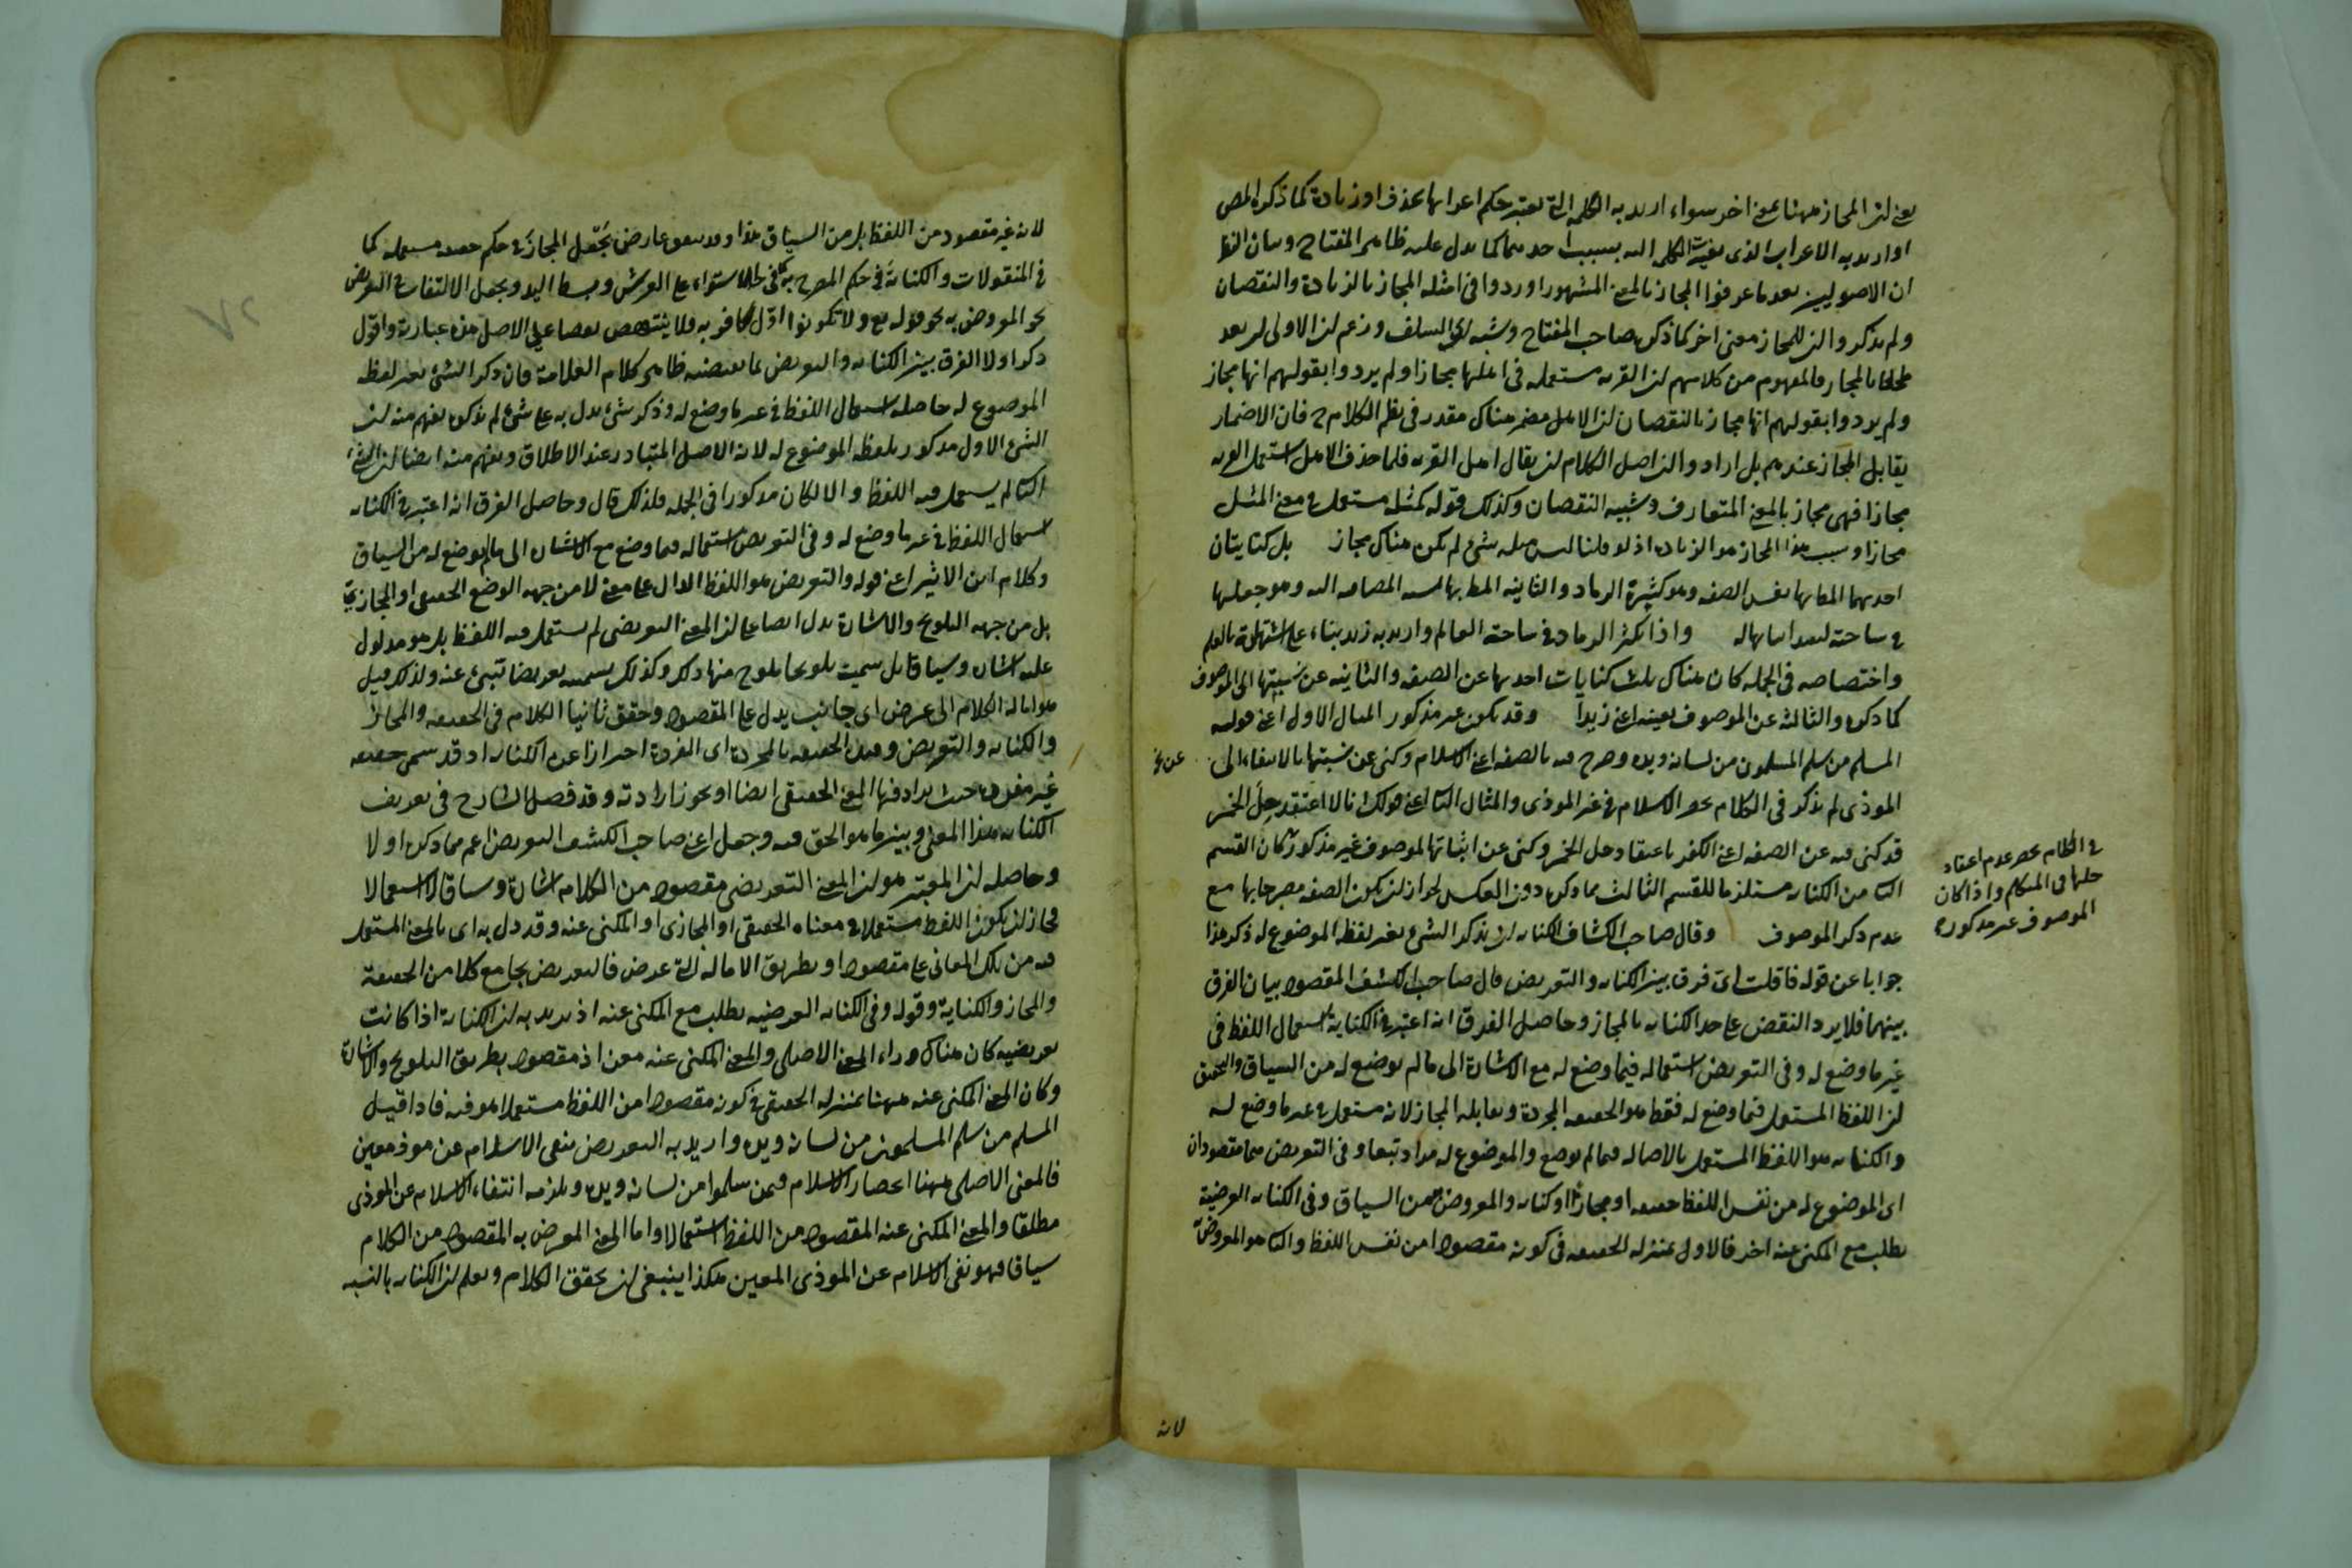 يعني ان المجاز ههنا بمعنى اخر سواء اريد به الكلمة التي تغير حكم اعرابها بحذف او زيادة كما ذكره المص
او اريد به الاعراب الذي تغيرت الكلمة اليه بسبب احدهما كما يدل عليه ظاهر المفتاح وبيان النظر
ان الاصوليين بعد ما عرفوا المجاز بالمعنى المشهور اوردوا في امثلة المجاز بالزيادة والنقصان
ولم يذكروا ان للمجاز معنى اخر كما ذكره صاحب المفتاح ونسبه الى السلف وزعم ان الاولى ان يعد
ملحقا بالمجاز فالمفهوم من كلامهم ان القرية مستعملة في اهلها مجازا ولم يريدوا بقولهم انها مجاز
ولم يريدوا بقولهم انها مجاز بالنقصان ان الاهل مضمر هناك مقدر في نظم الكلام ح فان الاضمار
يقابل المجاز عندهم بل ارادوا ان اصل الكلام ان يقال اهل القرية فلما حذف الاهل استعمل القرية
مجازا فهي مجاز بالمعنى المتعارف وسببه النقصان وكذلك قوله كمثله مستعمل في معنى المثل
مجازا وسبب هذا المجاز هو الزيادة اذ لو قلنا ليس مثله شيء لم يكن هناك مجاز بل كنايتان
احديهما المط بها نفس الصفة وهو كثيرة الرماد والثانية المط بها نسبة المضاف اليه وهو جعلها
في ساحته ليفيد اثباتها له واذا يكثر الرماد في ساحة العالم واريد به زيد بناء على اشتهاره بالعلم
واختصاصه في الجملة كان هناك ثلث كنايات احديها عن الصفة والثانية عن نسبتها الى الموصوف
كما ذكره والثالثة عن الموصوف بعينه اعني زيدا وقد يكون غير مذكور المثال الاول اعني قوله
المسلم من سلم المسلمون من لسانه ويده وصرح فيه بالصفة اعني الاسلام وكنى عن نسبتها بالانتفاء الى عن
الموذي لم يذكر في الكلام حصر الاسلام في غير الموذي والمثال الثاني اعني قولك انا لا اعتقد حل الخمر
قد كنى فيه عن الصفة اعني الكفر باعتقاد حل الخمر وكنى عن اثباتها لموصوف غير مذكور كان القسم
الثاني من الكناية مستلزما للقسم الثالث مما ذكره دون العكس لجواز ان يكون الصفة مصرحا بها مع
عدم ذكر الموصوف وقال صاحب الكشاف الكناية ان يذكر الشيء بغير لفظه الموضوع له ذكر هذا
جوابا عن قوله فان قلت اي فرق بين الكناية والتعريض قال صاحب الكشف المقصود بيان الفرق
بينهما فلا يرد النقض على حد الكناية بالمجاز وحاصل الفرق انه اعتبر في الكناية استعمال اللفظ في
غير ما وضع له وفي التعريض استعماله فيما وضع له مع الاشارة الى ما لم يوضع له من السياق والتحقيق
ان اللفظ المستعمل فيما وضع له فقط هو الحقيقة المجردة ويقابله المجاز لانه مستعمل في غير ما وضع له
والكناية هو اللفظ المستعمل بالاصالة فيما لم يوضع والموضوع له مراد تبعا وفي التعريض هما مقصودان
اي الموضوع له من نفس اللفظ حقيقة او مجازا او كناية والمعرض به من السياق وفي الكناية العرضية
يطلب مع المكنى عنه اخر فالاول بمنزلة الحقيقة في كونه مقصودا من نفس اللفظ والثاني هو المعروض به
في الكلام حصر عدم اعتقاد
حلها في المتكلم واذا كان
الموصوف غير مذكور ه
لانه
لانه غير مقصود من اللفظ بل من السياق هذا وقد يتفق عارض يجعل المجاز في حكم حقيقة مستعملة كما
في المنقولات والكناية في حكم المصرح به كما في الاستواء على العرش وبسط اليد ويجعل الالتفات في التعريض
نحو المعروض به نحو قوله تع ولا تكونوا اول كافر به فلا ينتهض نقضا على الاصل هذه عبارته واقول
ذكر اولا الفرق بين الكناية والتعريض بما يقتضيه ظاهر كلام العلامة فان ذكر الشيء بغير لفظه
الموضوع له حاصله استعمال اللفظ في غير ما وضع له وذكر شيء يدل به على شيء لم تذكره يفهم منه ان
الشيء الاول مذكور بلفظه الموضوع له لانه الاصل المتبادر عند الاطلاق ويفهم منه ايضا ان الشيء
الثاني لم يستعمل فيه اللفظ والا لكان مذكورا في الجملة فلذلك قال وحاصل الفرق انه اعتبر في الكناية
استعمال اللفظ في غير ما وضع له وفي التعريض استعماله فيما وضع مع الاشارة الى ما لم يوضع له من السياق
وكلام ابن الاثير اعني قوله والتعريض هو اللفظ الدال على معنى لا من جهة الوضع الحقيقي او المجازي
بل من جهة التلويح والاشارة يدل ايضا على ان المعنى التعريضي لم يستعمل فيه اللفظ بل هو مدلول
عليه اشارة وسياقا بل تسميته تلويحا يلوح منها ذلك وكذلك تسميته تعريضا تنبئ عنه ولذلك قيل
هو امالة الكلام الى عرض اي جانب يدل على المقصود وحقق ثانيا الكلام في الحقيقة والمجاز
والكناية والتعريض وقيد الحقيقة بالمجردة اي المفردة احترازا عن الكناية اذ قد تسمى حقيقة
غير مفردة حيث يراد فيها المعنى الحقيقي ايضا او يجوز ارادته وقد فصل الشارح في تعريف
الكناية هذا المعنى وبين ما هو الحق فيه وجعل اعني صاحب الكشف التعريض اعم مما ذكره اولا
وحاصله ان المعتبر هو ان المعنى التعريضي مقصود من الكلام اشارة وسياقا لا استعمالا
فجاز ان يكون اللفظ مستعملا في معناه الحقيقي او المجازي او المكنى عنه وقد دل به اي بالمعنى المستعمل
فيه من تلك المعاني على مقصود او بطريق الامالة الى عرض فالتعريض يجامع كلا من الحقيقة
والمجاز والكناية وقوله وفي الكناية العرضية يطلب مع المكنى عنه اذ يريد به ان الكناية اذا كانت
تعريضية كان هناك وراء المعنى الاصلي والمعنى المكنى عنه معنى اذ مقصود بطريق التلويح والاشارة
وكان المعنى المكنى عنه ههنا بمنزلة الحقيقي في كونه مقصودا من اللفظ مستعملا هو فيه فاذا قيل
المسلم من سلم المسلمون من لسانه ويده واريد به التعريض بنفي الاسلام عن موذ معين
فالمعنى الاصلي ههنا انحصار الاسلام فيمن سلموا من لسانه ويده ويلزمه انتفاء الاسلام عن الموذي
مطلقا والمعنى المكنى عنه المقصود من اللفظ استعمالا واما المعنى المعرض به المقصود من الكلام
سياقا فهو نفي الاسلام عن الموذي المعين هكذا ينبغي ان يحقق الكلام ويعلم ان الكناية بالنسبة